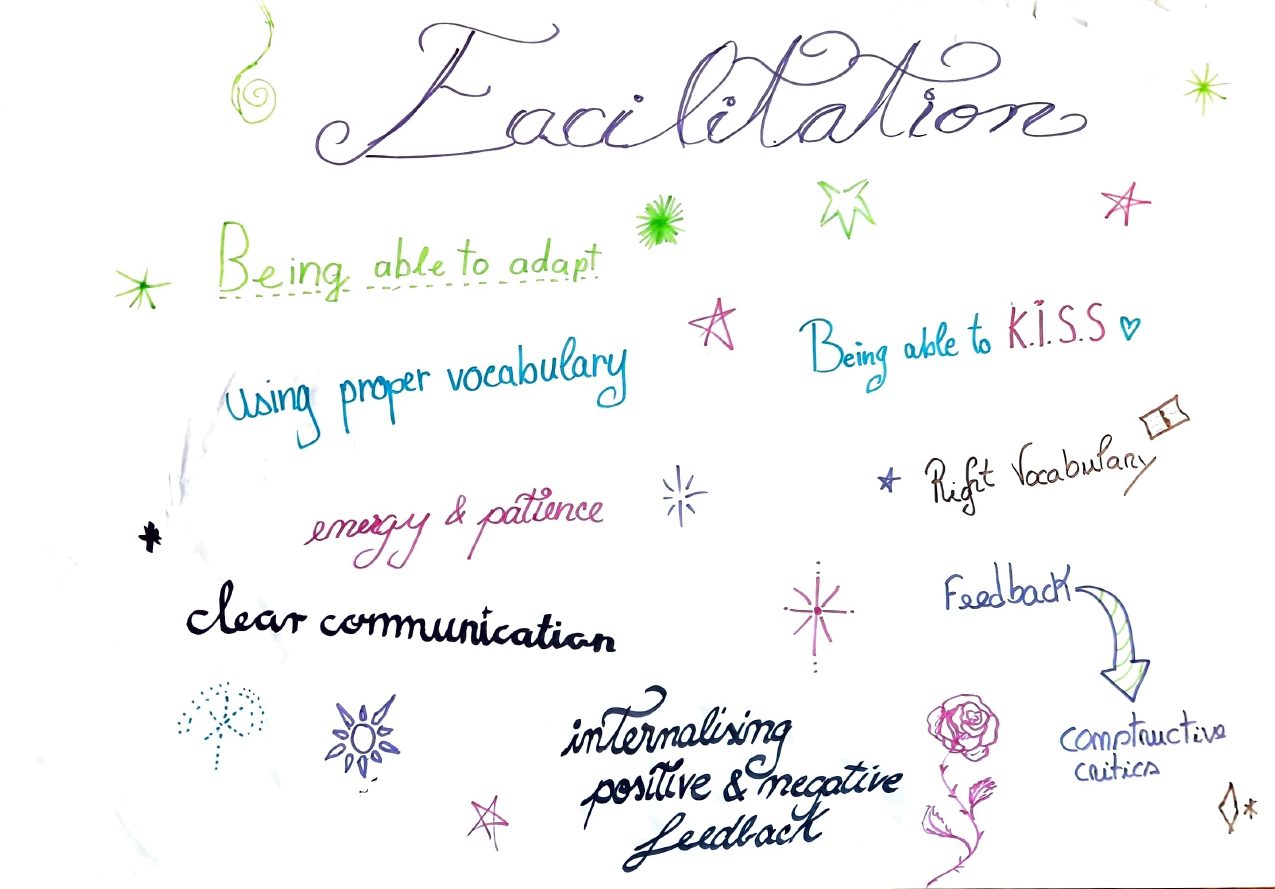 Facilitation
Being able to adapt
using proper vocabulary
Being able to K.I.S.S
Right Vocabulary
energy & patience
Feedback
clear communication
constructive
critics
internalising
positive & negative
feedback